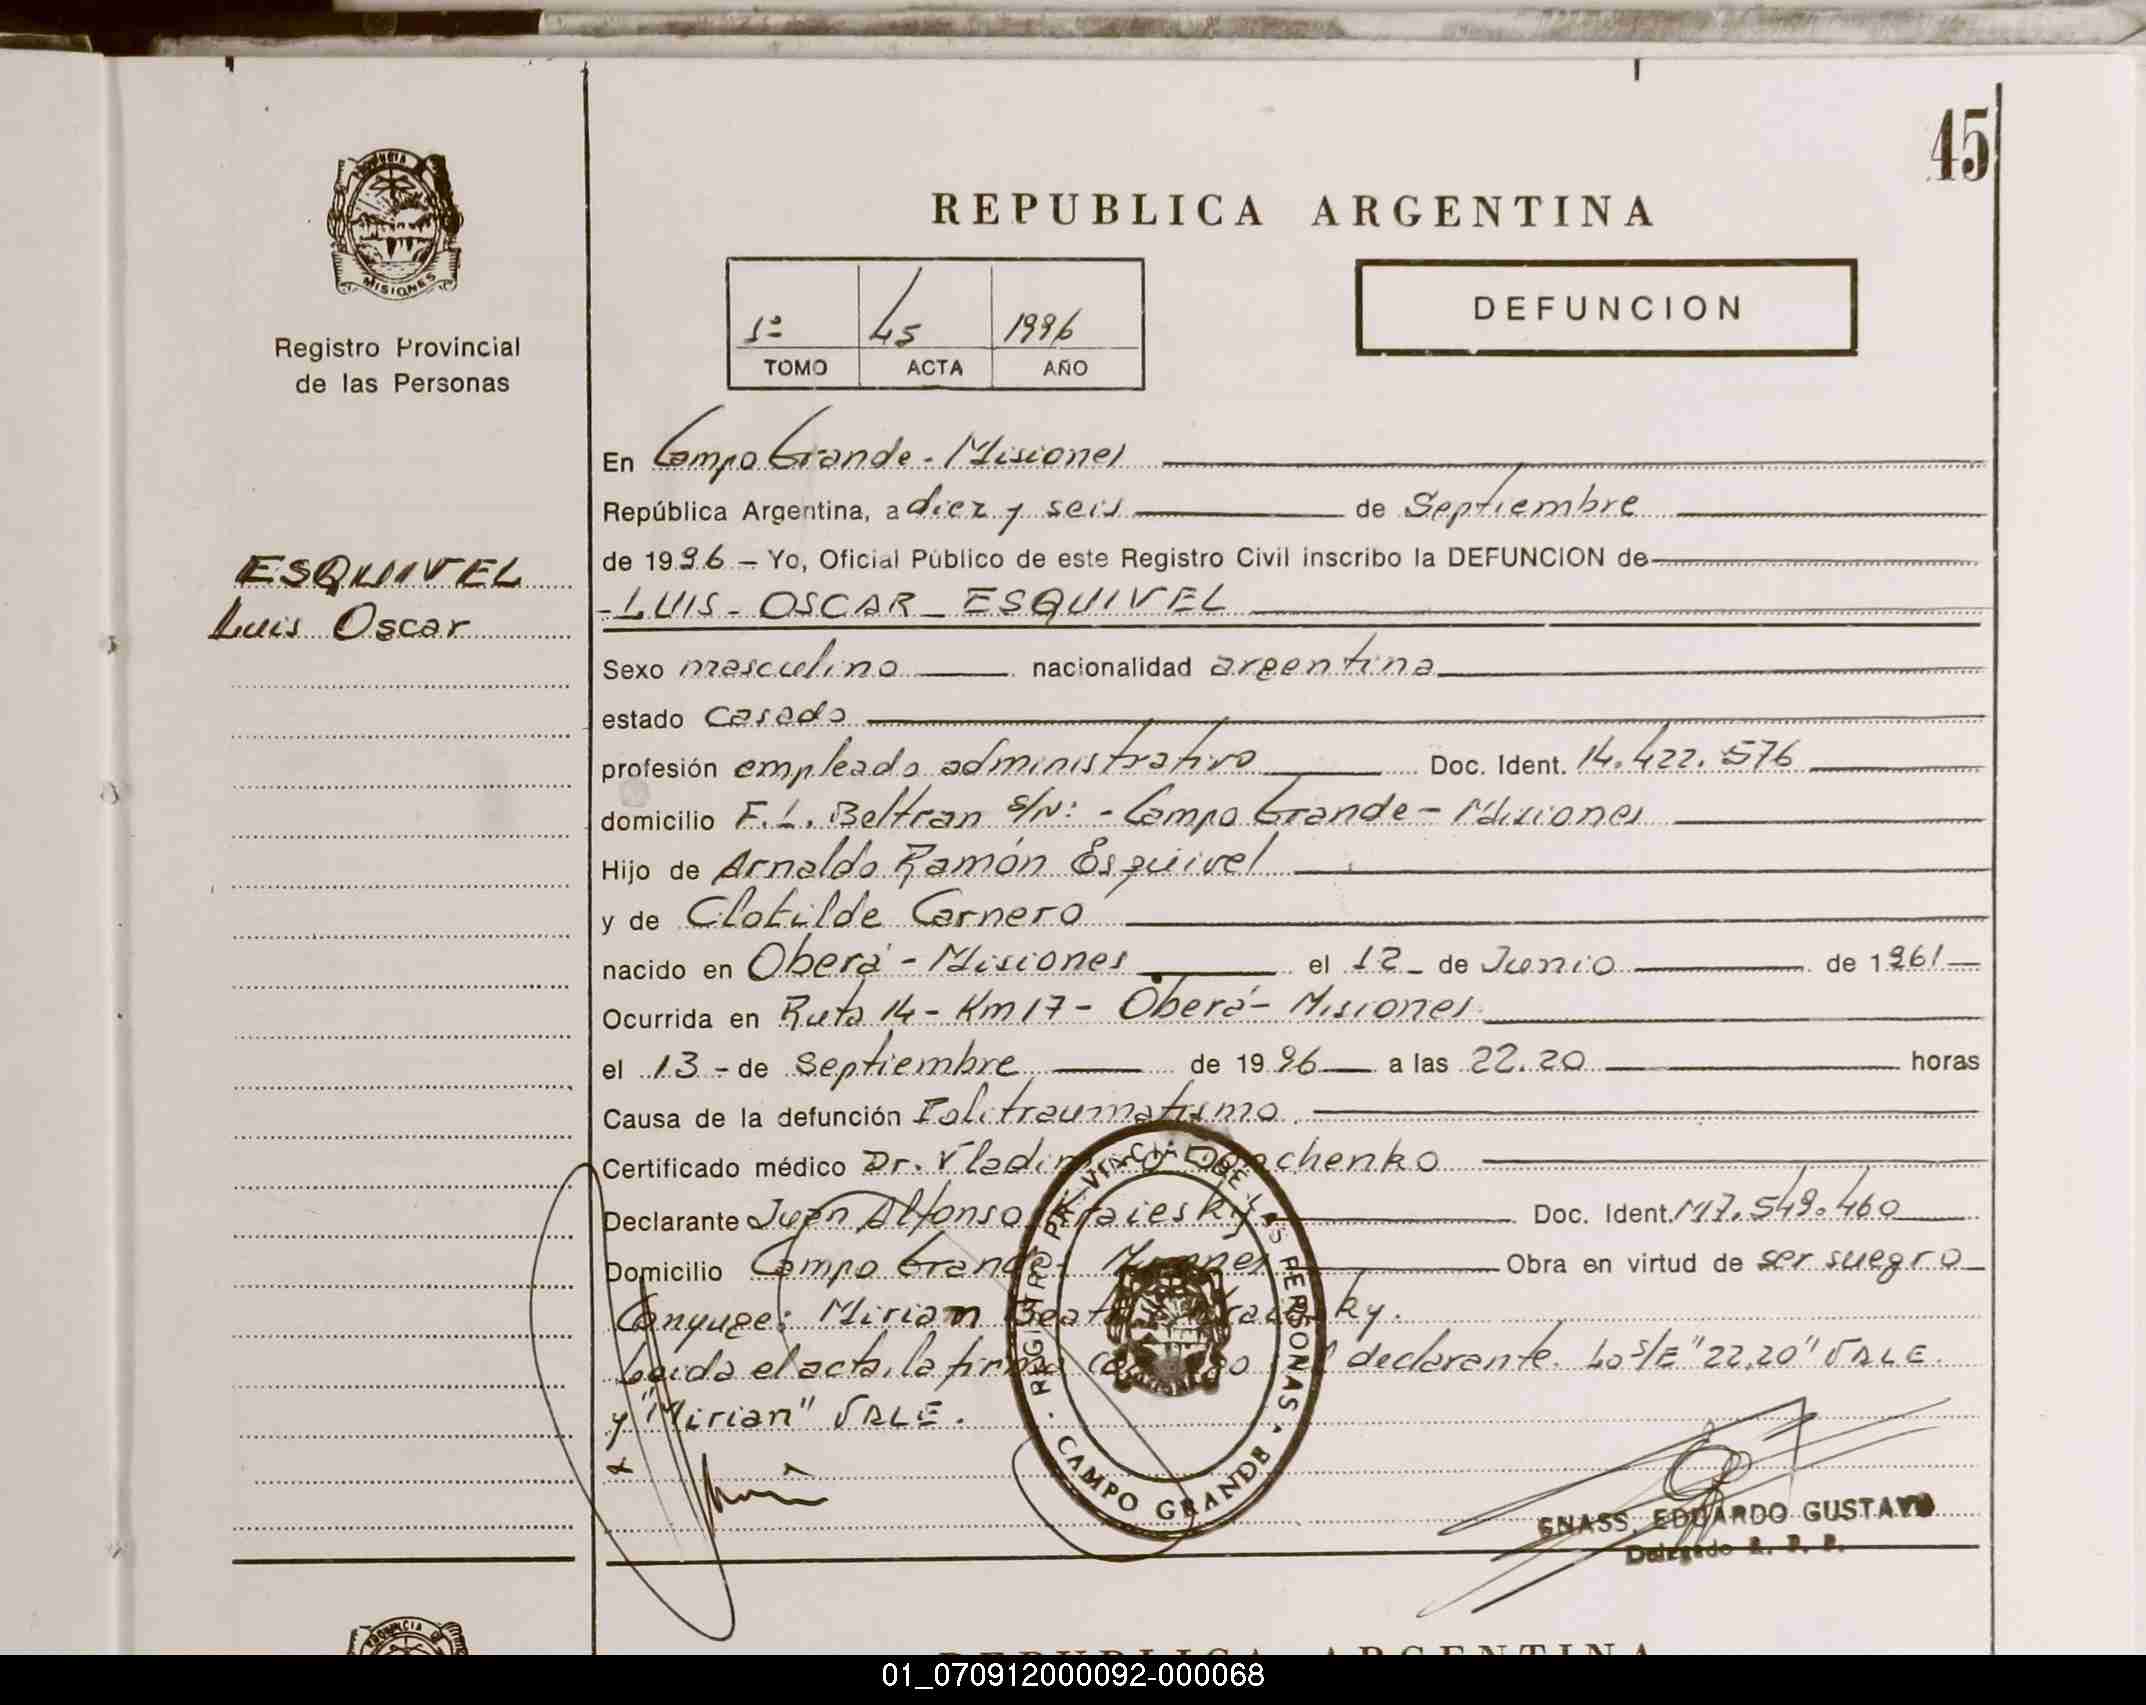 45
PROVINCIA DE
MISIONES
REPUBLICA ARGENTINA
Registro Provincial
de las Personas
1º 45 1996
TOMO ACTA AÑO
DEFUNCION
ESQUIVEL
Luis Oscar
En Campo Grande - Misiones
República Argentina, a diez y seis de Septiembre
de 1996 – Yo, Oficial Público de este Registro Civil inscribo la DEFUNCION de
- LUIS - OSCAR - ESQUIVEL
Sexo masculino nacionalidad argentina
estado casado
profesión empleado administrativo Doc. Ident. 14.422.576
domicilio F. L. Beltran S/N: - Campo Grande - Misiones
Hijo de Arnaldo Ramón Esquivel
y de Clotilde Carnero
nacido en Oberá - Misiones el 12 - de Junio de 1961
Ocurrida en Ruta 14 - Km 17 - Oberá - Misiones
el 13 - de Septiembre de 1996 a las 22.20 horas
Causa de la defunción Politraumatismo
Certificado médico Dr. Vladimiro
Declarante Juan Alfonso Doc. Ident. M7.549.460
Domicilio Campo Grande - Misiones Obra en virtud de ser suegro
Conyuge: Mirian Beatriz
Leida el acta, la firma conmigo el declarante. Lo S/E "22,20" VALE.
y "Mirian" VALE.
REGISTRO PROVINCIAL DE LAS PERSONAS
CAMPO GRANDE
GNASS, EDUARDO GUSTAVO
Delegado R. P. P.
PROVINCIA DE
REPUBLICA ARGENTINA
01_070912000092-000068